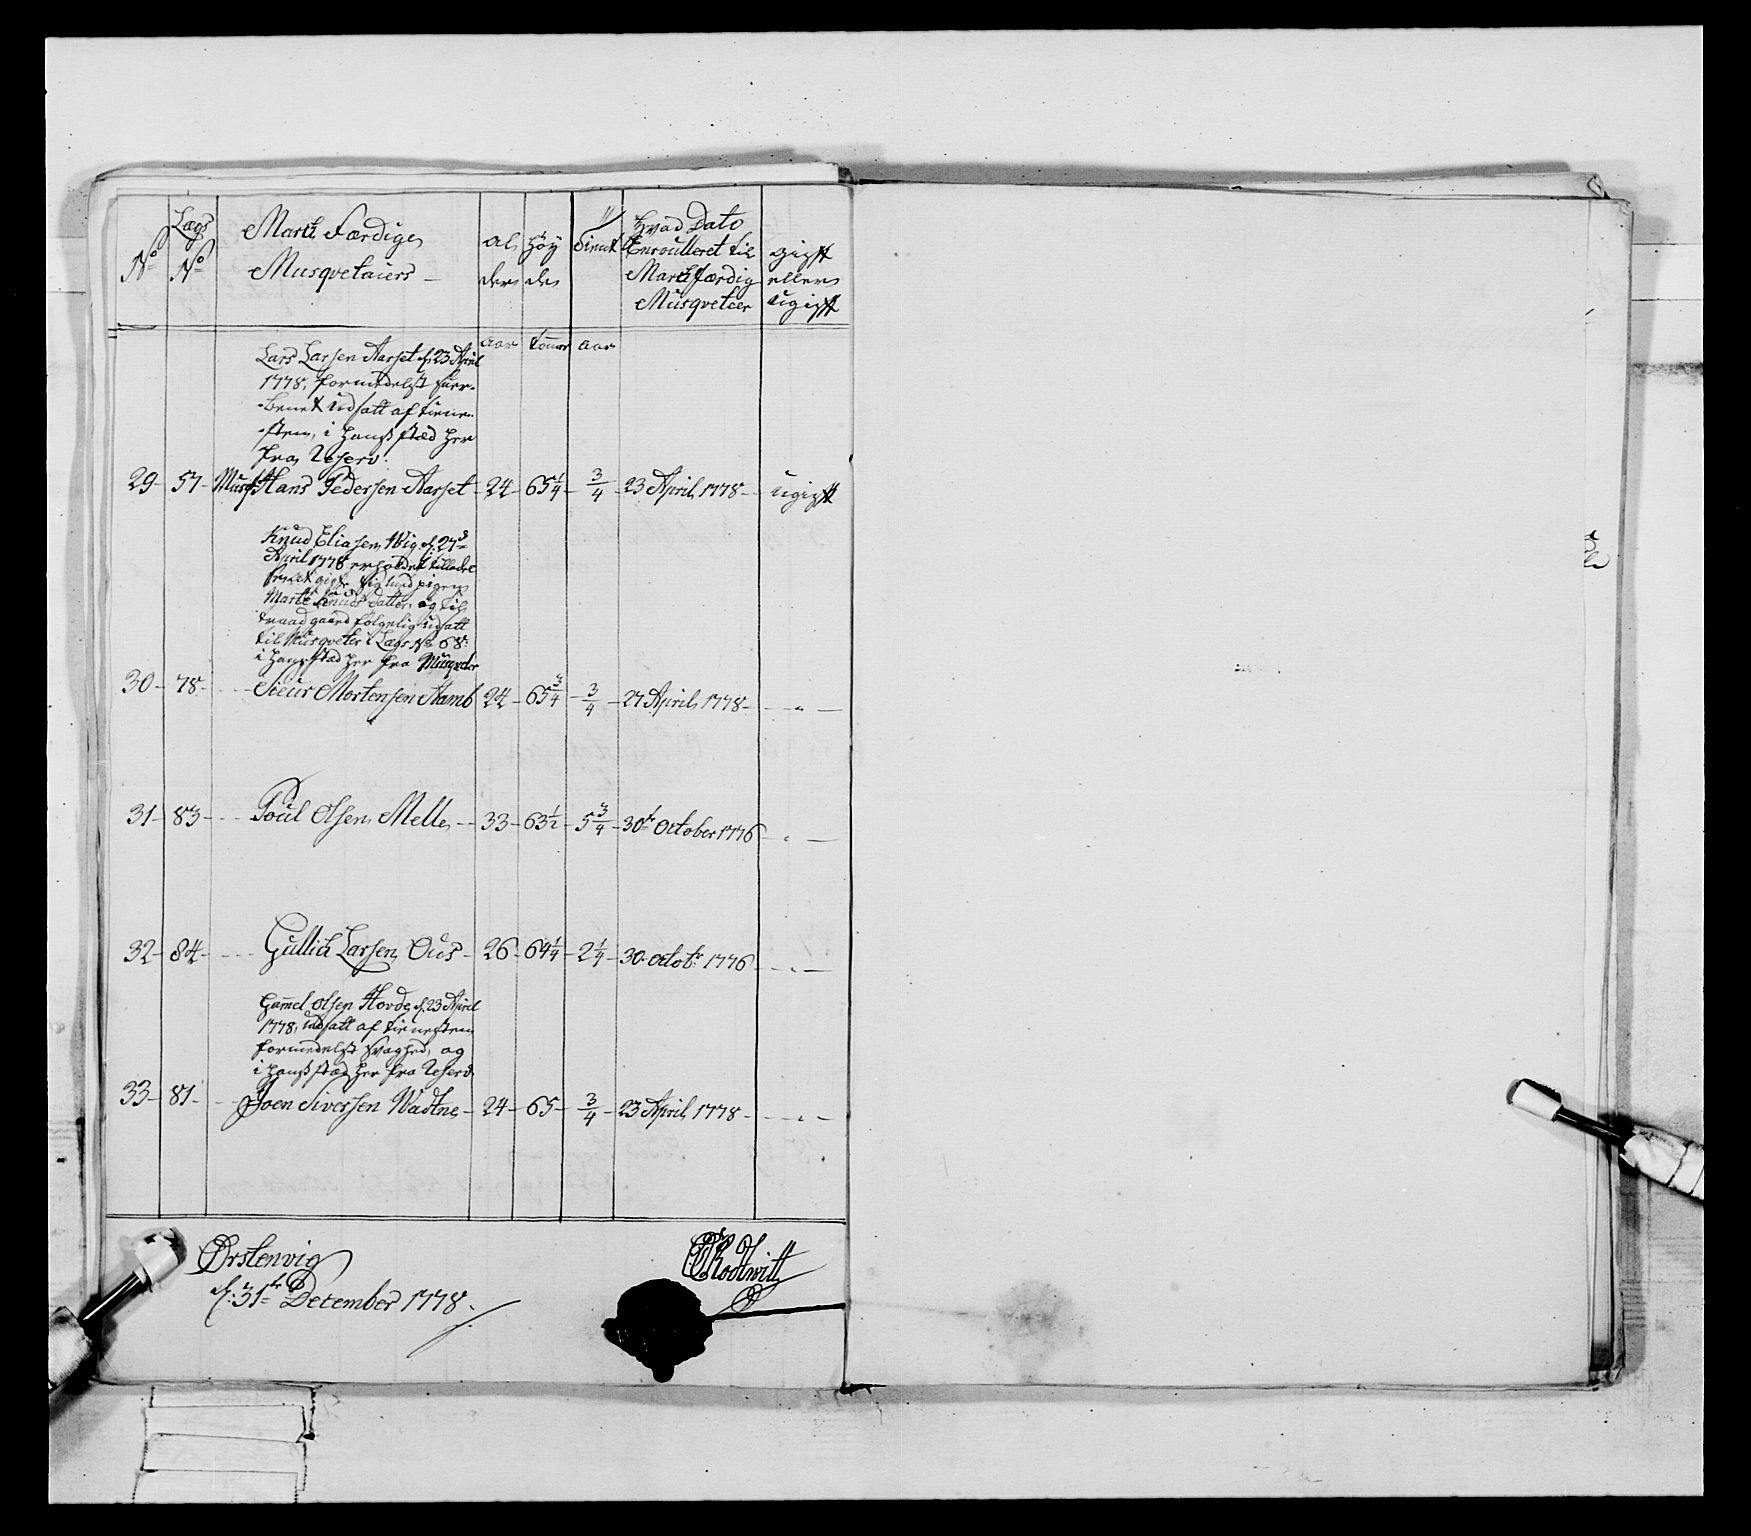 No
Lægs No
March Færdige
Musquetaiers
Al
der
Høy
de
tient
Hvad Dato
Enroulleret til
March færdig
Musqveteer
gift
eller
ugift
aar tommer aar
Lars Larsen Aarset d. 23 April
1778, formedelst
benet udsatt af tiene-
sten, i hans stæd her
fra Reserv:
29 - 57 - Musq: Hans Pedersen Aarset - 24 - 65 1/4 - 3/4 - 23 April 1778 - ugift
Knud Eliasen Wig d. 27de
April 1778 erholdet tilladel
sig med pigen
Marte Knuds datter, og til
traad gaard følgelig udsatt
til Musqveter i Lægs No 68:
i hans stæd her fra Musqveter
30 - 78 - - - Sieur Mortensen Aamb 24 - 65 3/4 - 3/4 - 27 April 1778 - - " -
31 - 83 - - - Poul Olsen Melle - 33 - 63 1/2 - 5 3/4 - 30te October 1776 - " -
32 - 84 - - - Gullich Larsen Ous - 26 - 64 1/4 - 2 1/4 - 30 Octobr: 1776 - " -
Gamel Olsen Hovde d. 23 April
1778, udsatt af tienesten
formedelst svaghed, og
i hans stæd her fra Reserv:
33 - 81 - - - Joen Siversen Wadtne - 24 - 65 - 3/4 - 23 April 1778 - - " -
Ørstenvig
d: 31te December 1778.
Rodtwitt